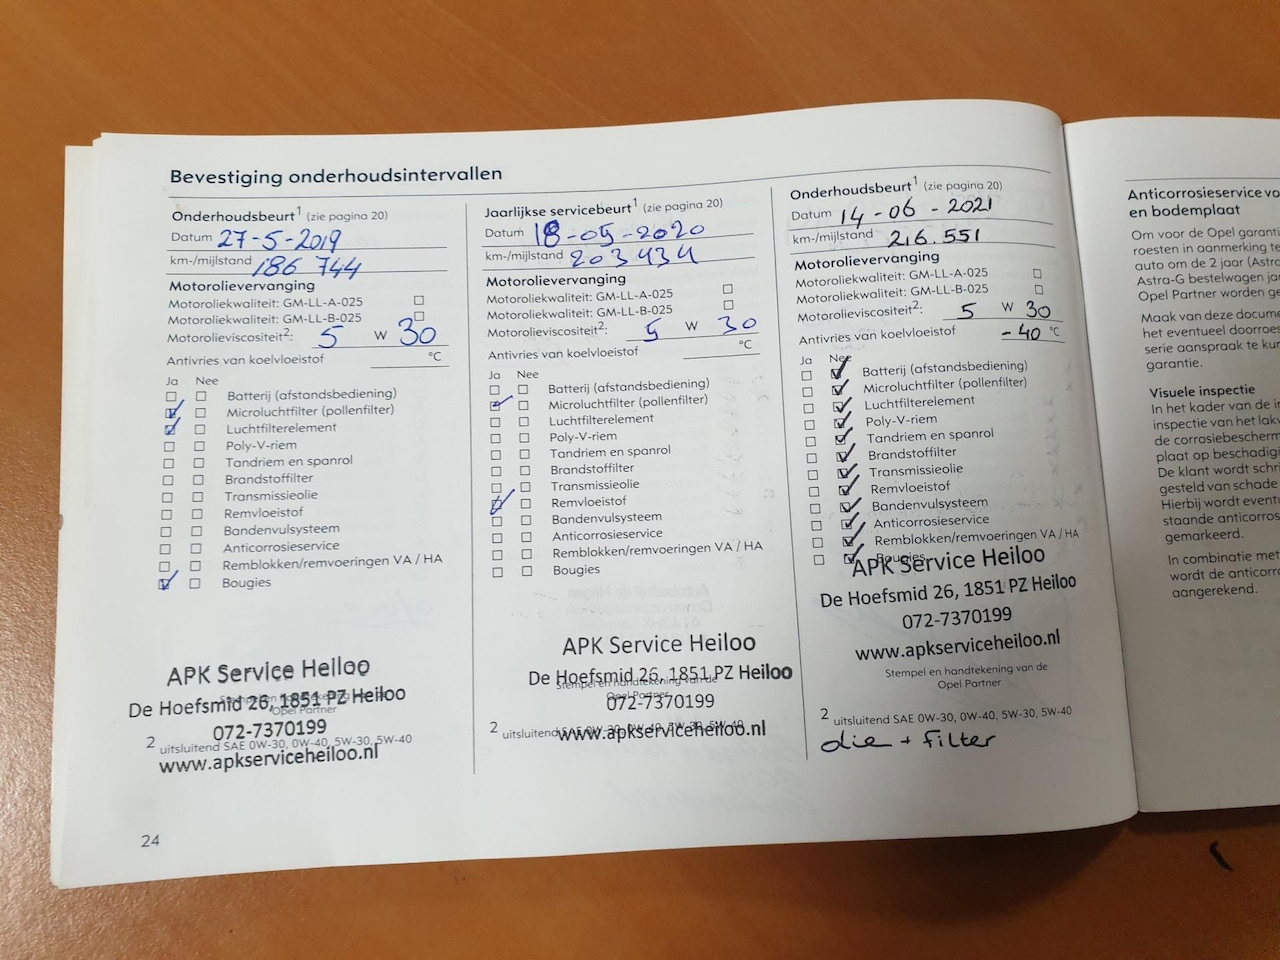 Bevestiging onderhoudsintervallen
Onderhoudsbeurt¹ (zie pagina 20)
Datum 27-5-2019
km-/mijlstand 186 744
Motorolievervanging
Motoroliekwaliteit: GM-LL-A-025
Motoroliekwaliteit: GM-LL-B-025
Motorolieviscositeit²: 5 W 30
Antivries van koelvloeistof °C
Ja Nee
Batterij (afstandsbediening)
Microluchtfilter (pollenfilter)
Luchtfilterelement
Poly-V-riem
Tandriem en spanrol
Brandstoffilter
Transmissieolie
Remvloeistof
Bandenvulsysteem
Anticorrosieservice
Remblokken/remvoeringen VA / HA
Bougies
APK Service Heiloo
Stempel en handtekening van de
De Hoefsmid 26, 1851 PZ Heiloo
Opel Partner
072-7370199
² uitsluitend SAE 0W-30, 0W-40, 5W-30, 5W-40
www.apkserviceheiloo.nl
24
Jaarlijkse servicebeurt¹ (zie pagina 20)
Datum 18-05-2020
km-/mijlstand 203434
Motorolievervanging
Motoroliekwaliteit: GM-LL-A-025
Motoroliekwaliteit: GM-LL-B-025
Motorolieviscositeit²: 5 W 30
Antivries van koelvloeistof °C
Ja Nee
Batterij (afstandsbediening)
Microluchtfilter (pollenfilter)
Luchtfilterelement
Poly-V-riem
Tandriem en spanrol
Brandstoffilter
Transmissieolie
Remvloeistof
Bandenvulsysteem
Anticorrosieservice
Remblokken/remvoeringen VA / HA
Bougies
APK Service Heiloo
De Hoefsmid 26, 1851 PZ Heiloo
Stempel en handtekening van de
Opel Partner
072-7370199
² uitsluitend SAE 0W-30, 0W-40, 5W-30, 5W-40
www.apkserviceheiloo.nl
Onderhoudsbeurt¹ (zie pagina 20)
Datum 14-06-2021
km-/mijlstand 216.551
Motorolievervanging
Motoroliekwaliteit: GM-LL-A-025
Motoroliekwaliteit: GM-LL-B-025
Motorolieviscositeit²: 5 W 30
Antivries van koelvloeistof -40 °C
Ja Nee
Batterij (afstandsbediening)
Microluchtfilter (pollenfilter)
Luchtfilterelement
Poly-V-riem
Tandriem en spanrol
Brandstoffilter
Transmissieolie
Remvloeistof
Bandenvulsysteem
Anticorrosieservice
Remblokken/remvoeringen VA / HA
Bougies
APK Service Heiloo
De Hoefsmid 26, 1851 PZ Heiloo
072-7370199
www.apkserviceheiloo.nl
Stempel en handtekening van de
Opel Partner
² uitsluitend SAE 0W-30, 0W-40, 5W-30, 5W-40
olie + filter
Anticorrosieservice
en bodemplaat
Om voor de Opel
roesten in aanmerking te
auto om de 2 jaar (Astra
Astra-G bestelwagen
Opel Partner worden
Maak van deze
het eventueel
serie aanspraak te
garantie.
Visuele inspectie
In het kader van de
inspectie van het
de
plaat op
De klant wordt
gesteld van schade
Hierbij wordt
staande
gemarkeerd.
In combinatie met
wordt de
aangerekend.